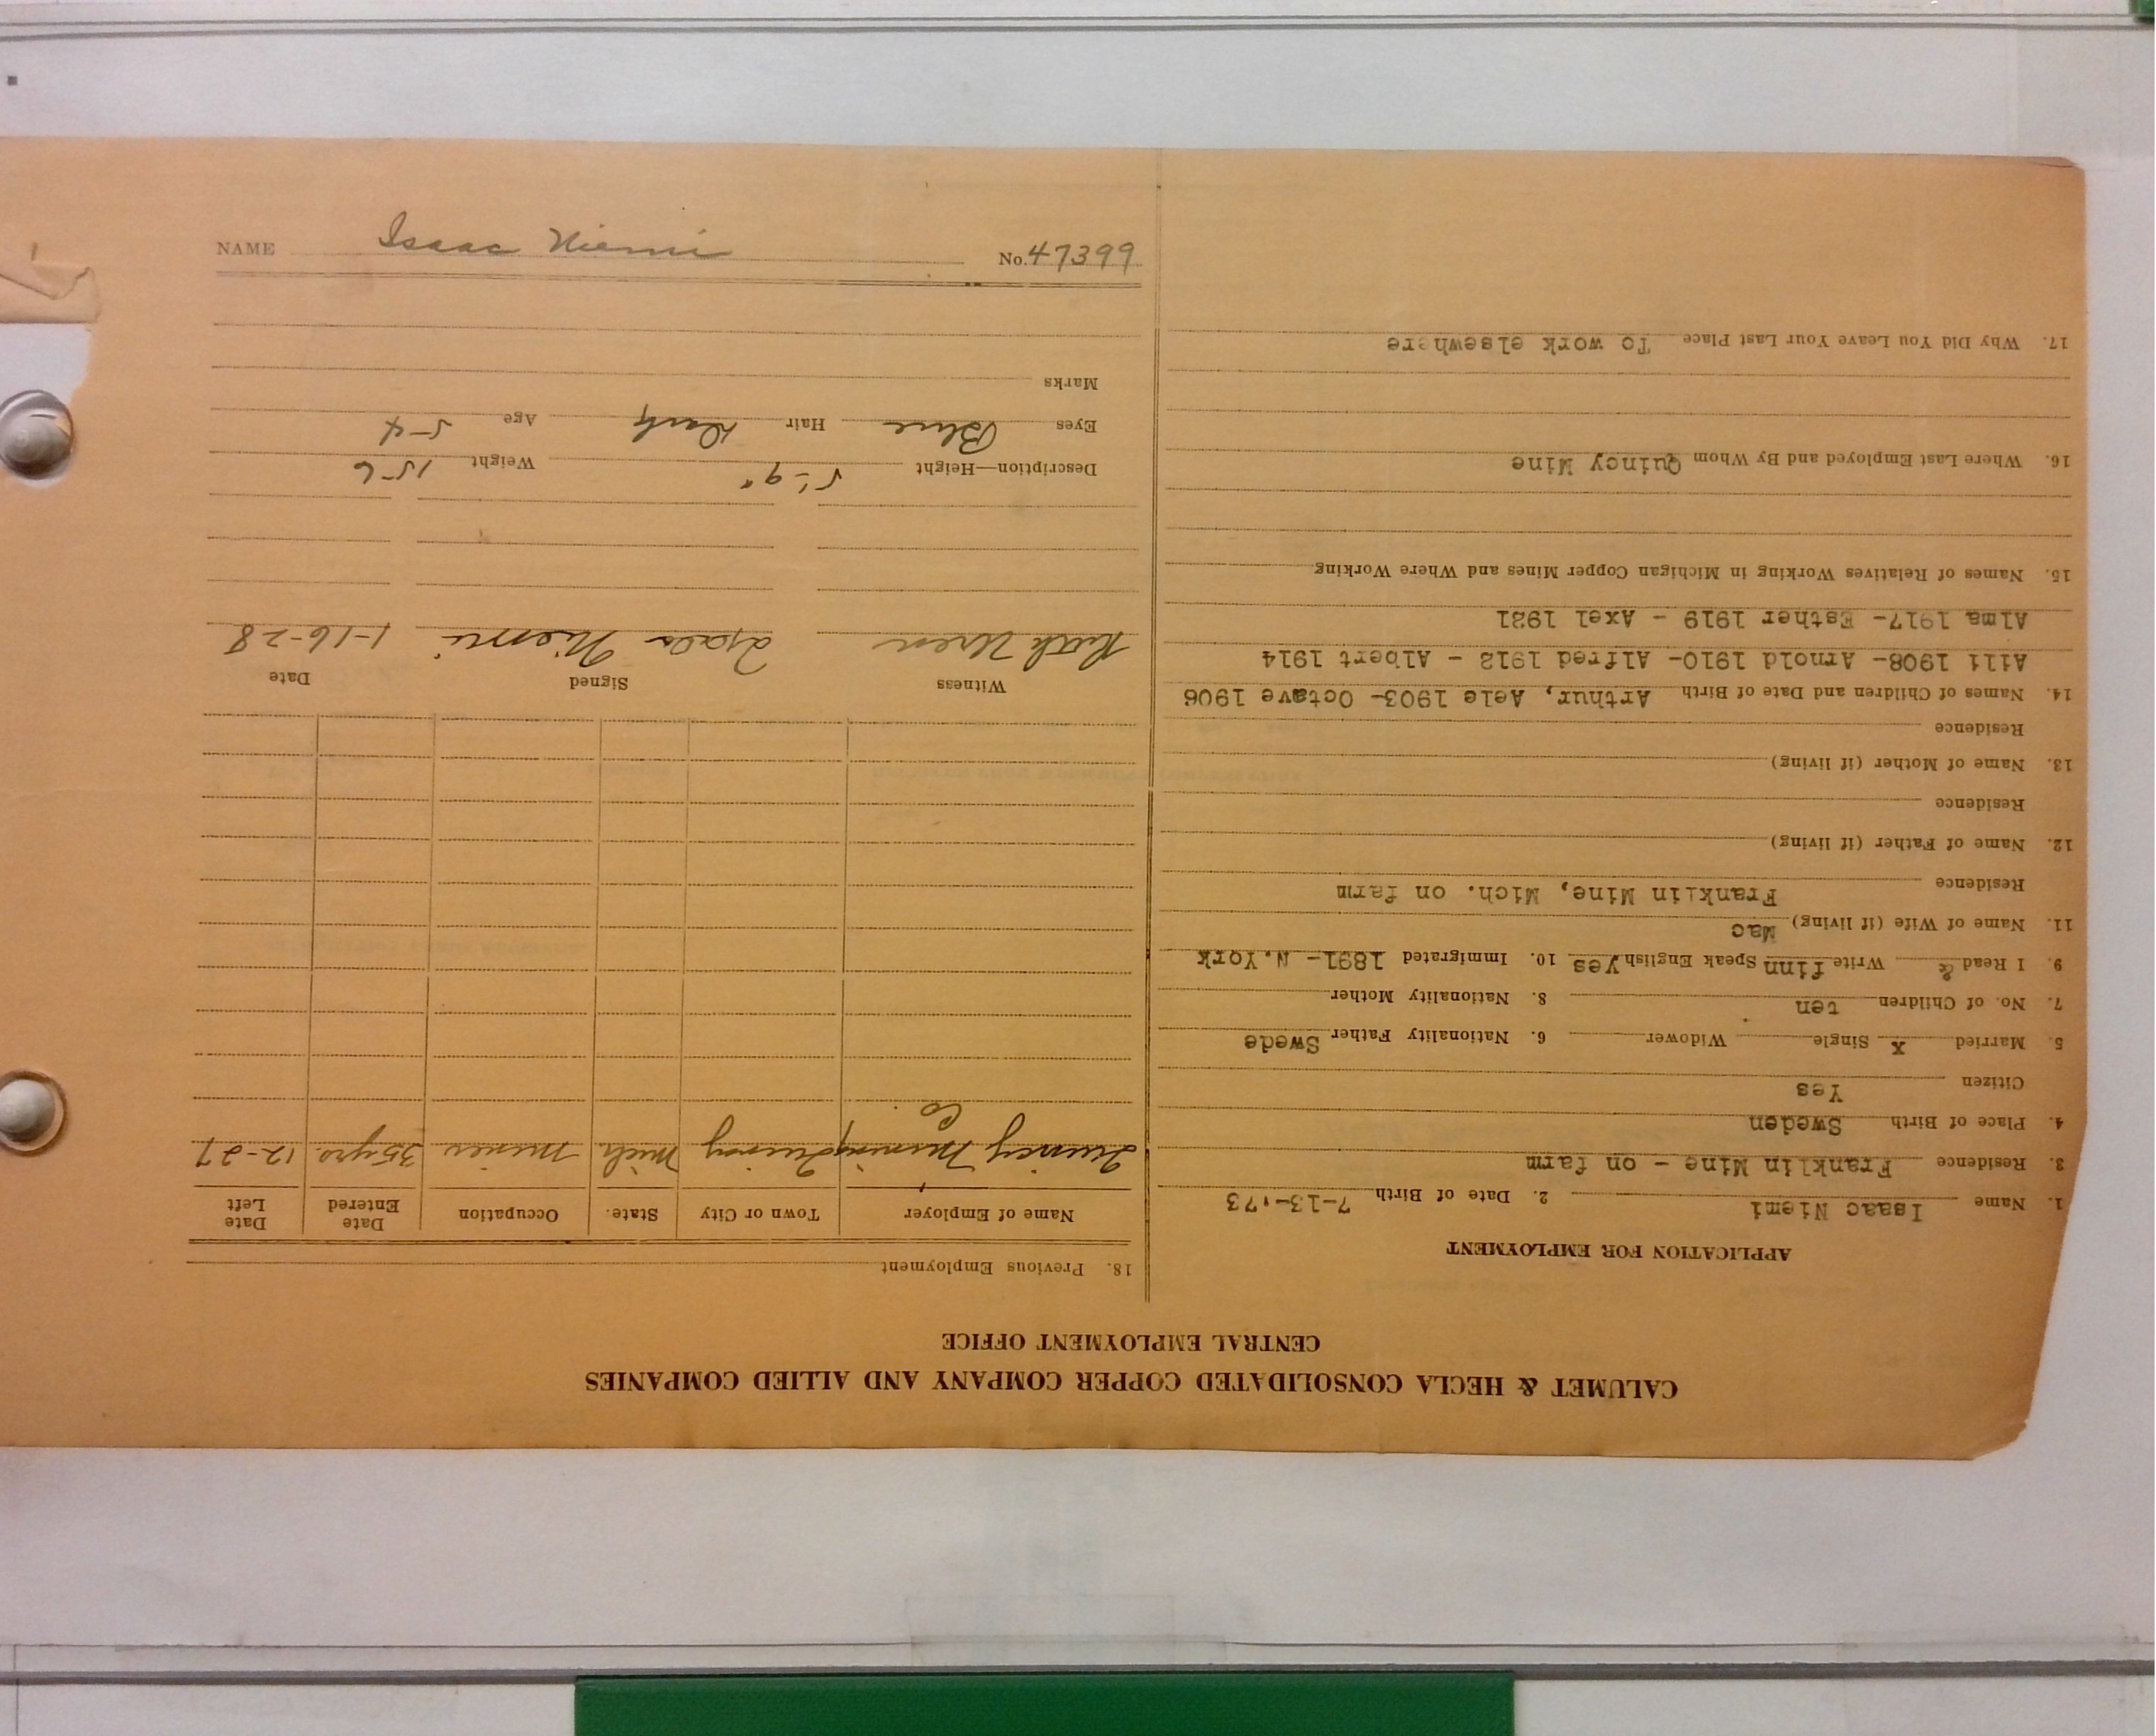 NAME Isaac Niemi No. 47399
CALUMET & HECLA CONSOLIDATED COPPER COMPANY AND ALLIED COMPANIES
CENTRAL EMPLOYMENT OFFICE
APPLICATION FOR EMPLOYMENT
1. Name Isaac Niemi 2. Date of Birth 7-13-'73
3. Residence Franklin Mine - on farm
4. Place of Birth Sweden
Citizen Yes
5. Married x Single Widower 6. Nationality Father Swede
7. No. of Children ten 8. Nationality Mother
9. I Read & Write finn Speak English yes 10. Immigrated 1891- N.York
11. Name of Wife (if living) Mac
Residence Franklin Mine, Mich. on farm
12. Name of Father (if living)
Residence
13. Name of Mother (if living)
Residence
14. Names of Children and Date of Birth Arthur, Aele 1903- Octave 1906
Aili 1908- Arnold 1910- Alfred 1912 - Albert 1914
Alma 1917- Esther 1919 - Axel 1921
15. Names of Relatives Working in Michigan Copper Mines and Where Working
16. Where Last Employed and By Whom Quincy Mine
17. Why Did You Leave Your Last Place To work elsewhere
18. Previous Employment
Name of Employer Town or City State. Occupation Date Entered Date Left
Quincy Mining Co. Quincy Mich miner 35 yrs. 12-27
Witness Signed Date
Ruth Uren Isaac Niemi 1-16-28
Description—Height 5'-9" Weight 156
Eyes Blue Hair Dark Age 54
Marks